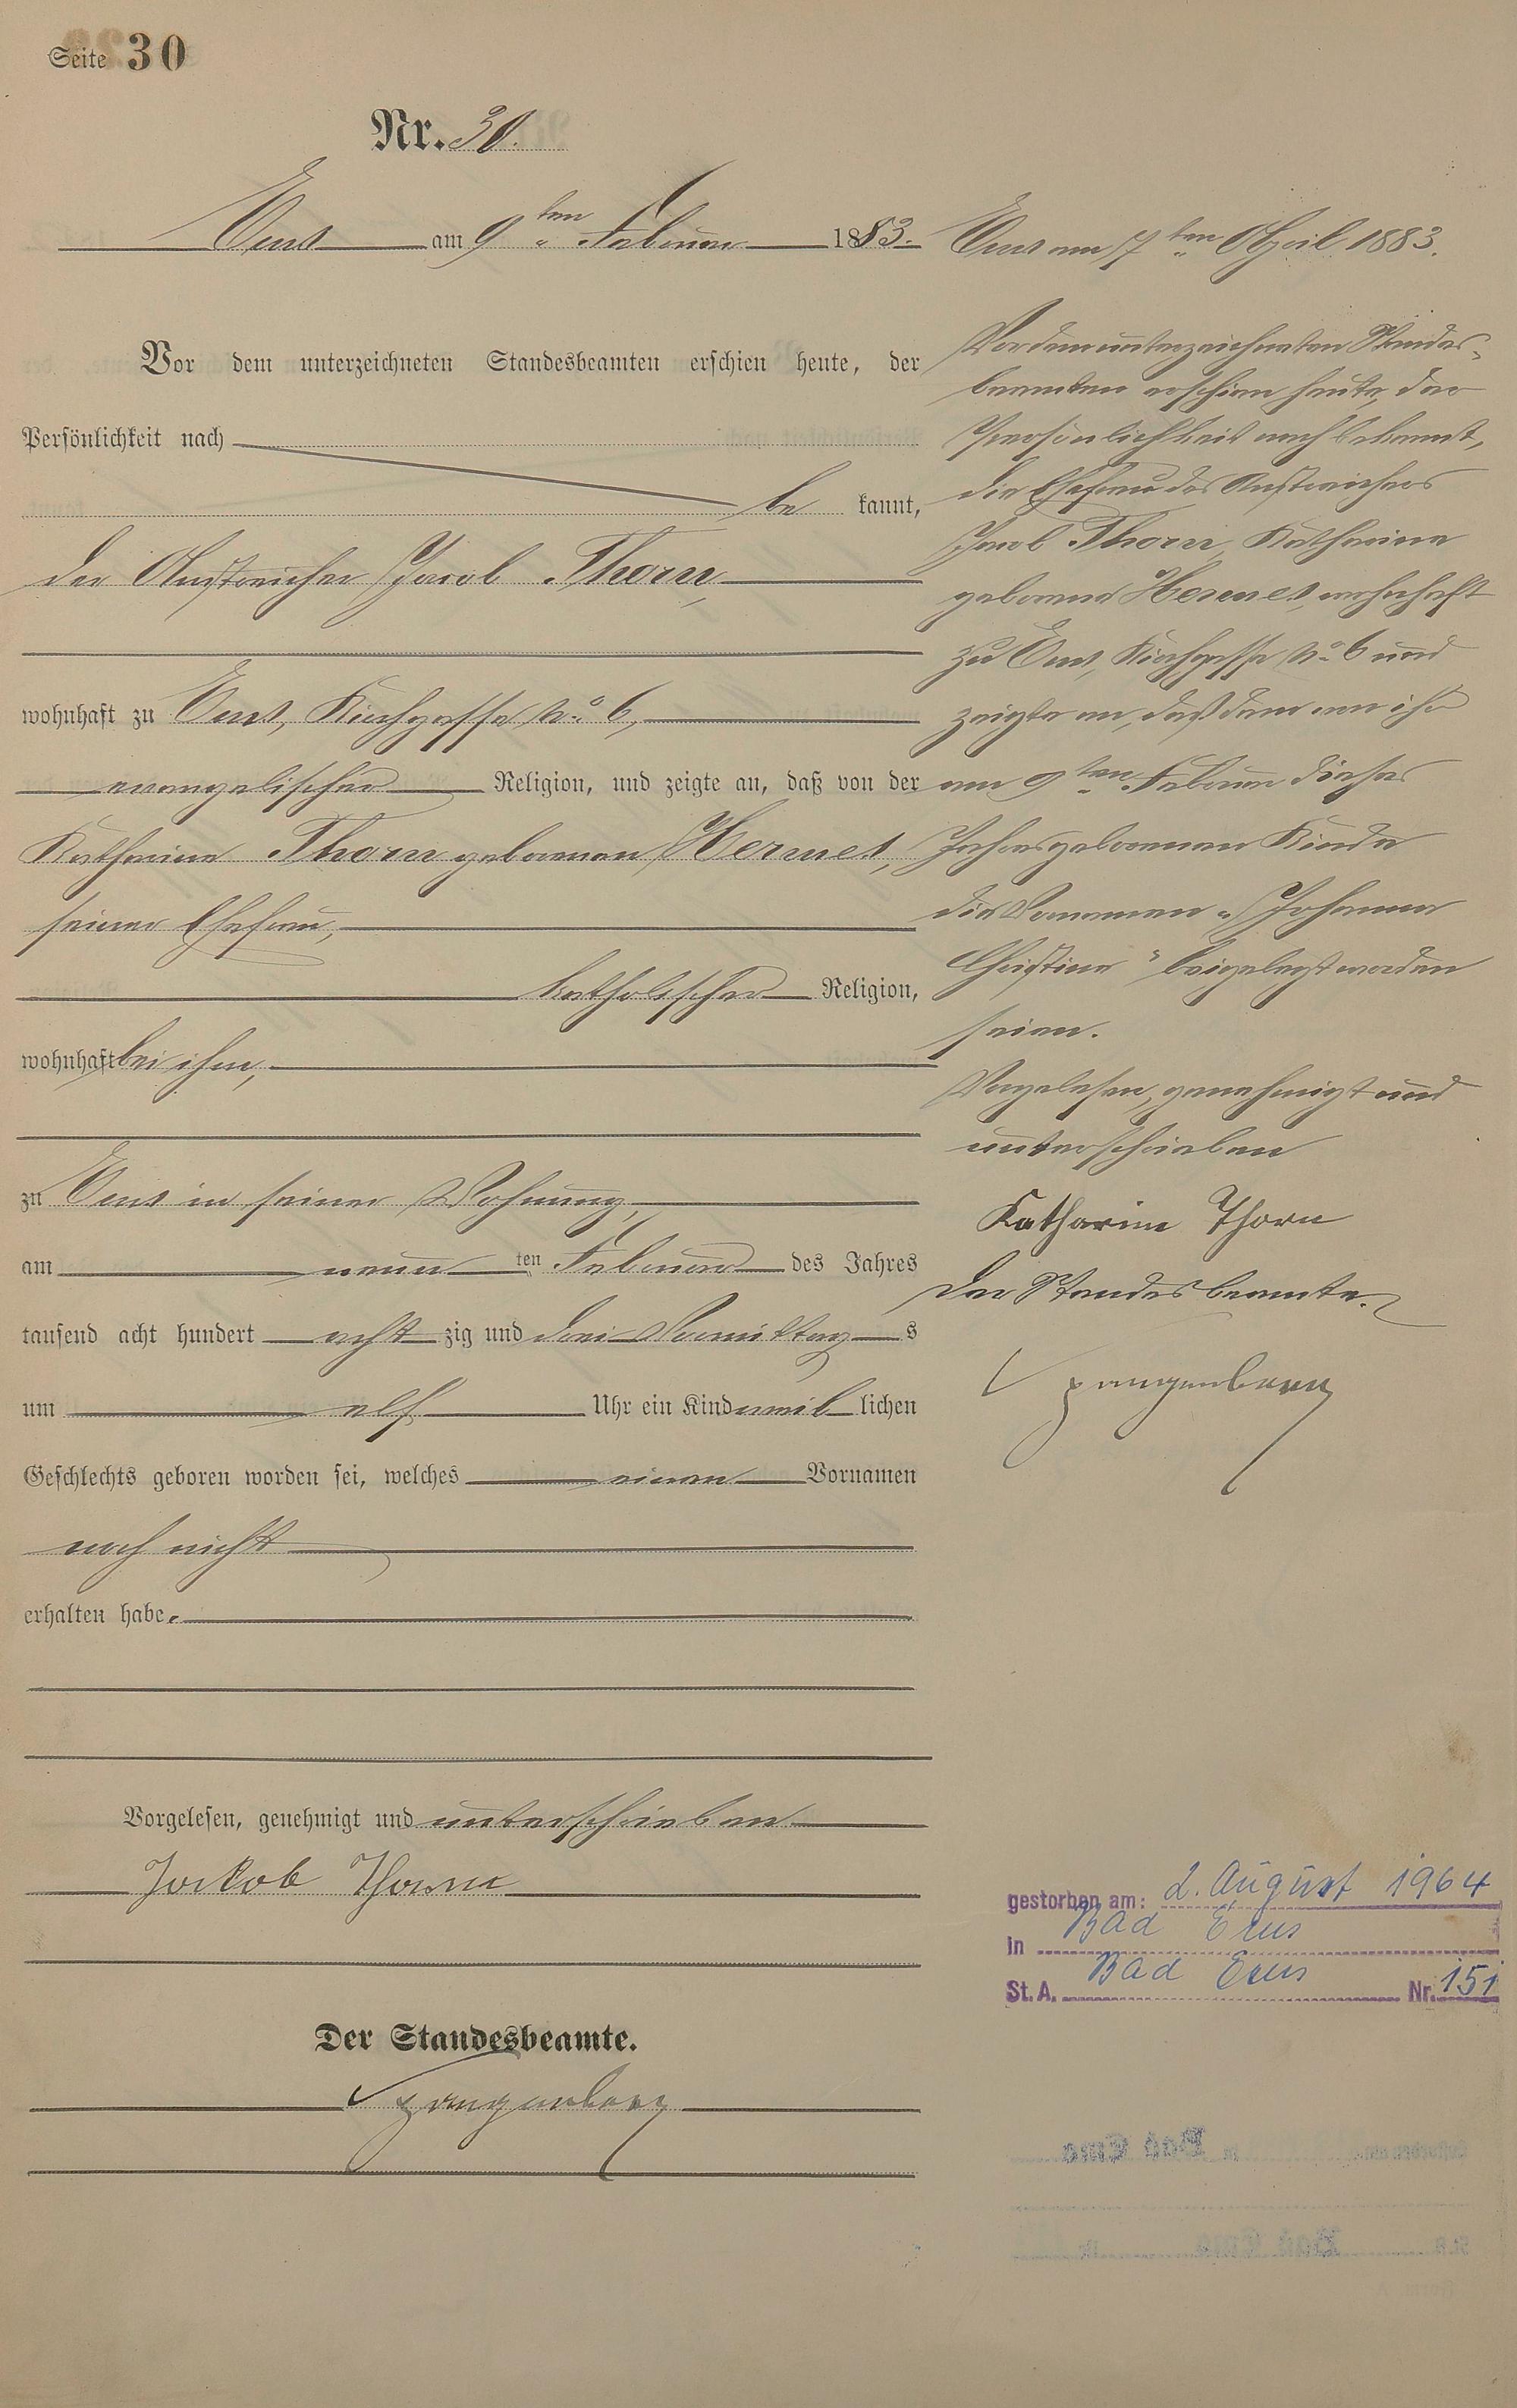 Seite 30
Nr. 30.
Ems am 9ten Februar 1883.
Vor dem unterzeichneten Standesbeamten erschien heute, der
Persönlichkeit nach
be kannt,
der Anstreicher Jacob Thorn,
wohnhaft zu Ems, Kirchgasse No 6,
evangelischer Religion, und zeigte an, daß von der
Katharina Thorn geborenen Hermes,
seiner Ehefrau,
katholischer Religion,
wohnhaft bei ihm,
zu Ems in seiner Wohnung,
am neun ten Februar des Jahres
tausend acht hundert acht zig und drei Vormittag s
um elf Uhr ein Kind weib lichen
Geschlechts geboren worden sei, welches einen Vornamen
noch nicht
erhalten habe.
Vorgelesen, genehmigt und unterschrieben
Jackob Thorn
Der Standesbeamte.
Spangenberg
Ems am 7ten April 1883.
Vor dem unterzeichneten Standes-
beamten erschien heute, der
Persönlichkeit nach bekannt,
die Ehefrau des Anstreichers
Jacob Thorn, Katharina
geborene Hermes, wohnhaft
zu Ems, Kirchgasse No 6 und
zeigte an, daß dem von ihr
am 9ten Februar dieses
Jahres geborenen Kinde
die Vornamen „Johanna
Christine“ beigelegt worden
seien.
Vorgelesen, genehmigt und
unterschrieben
Katharina Thorn
Der Standesbeamte.
Spangenberg
gestorben am: 2. August 1964
in Bad Ems
St. A. Bad Ems Nr. 151